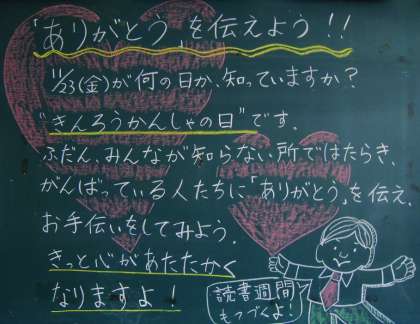 「ありがとう」を伝えよう!!
11/23(金)が何の日か、知っていますか?
"きんろうかんしゃの日"です。
ふだん、みんなが知らない所ではたらき、
がんばっている人たちに「ありがとう」を伝え、
お手伝いをしてみよう。
きっと心があたたかく
なりますよ!
読書週間
もつづくよ!